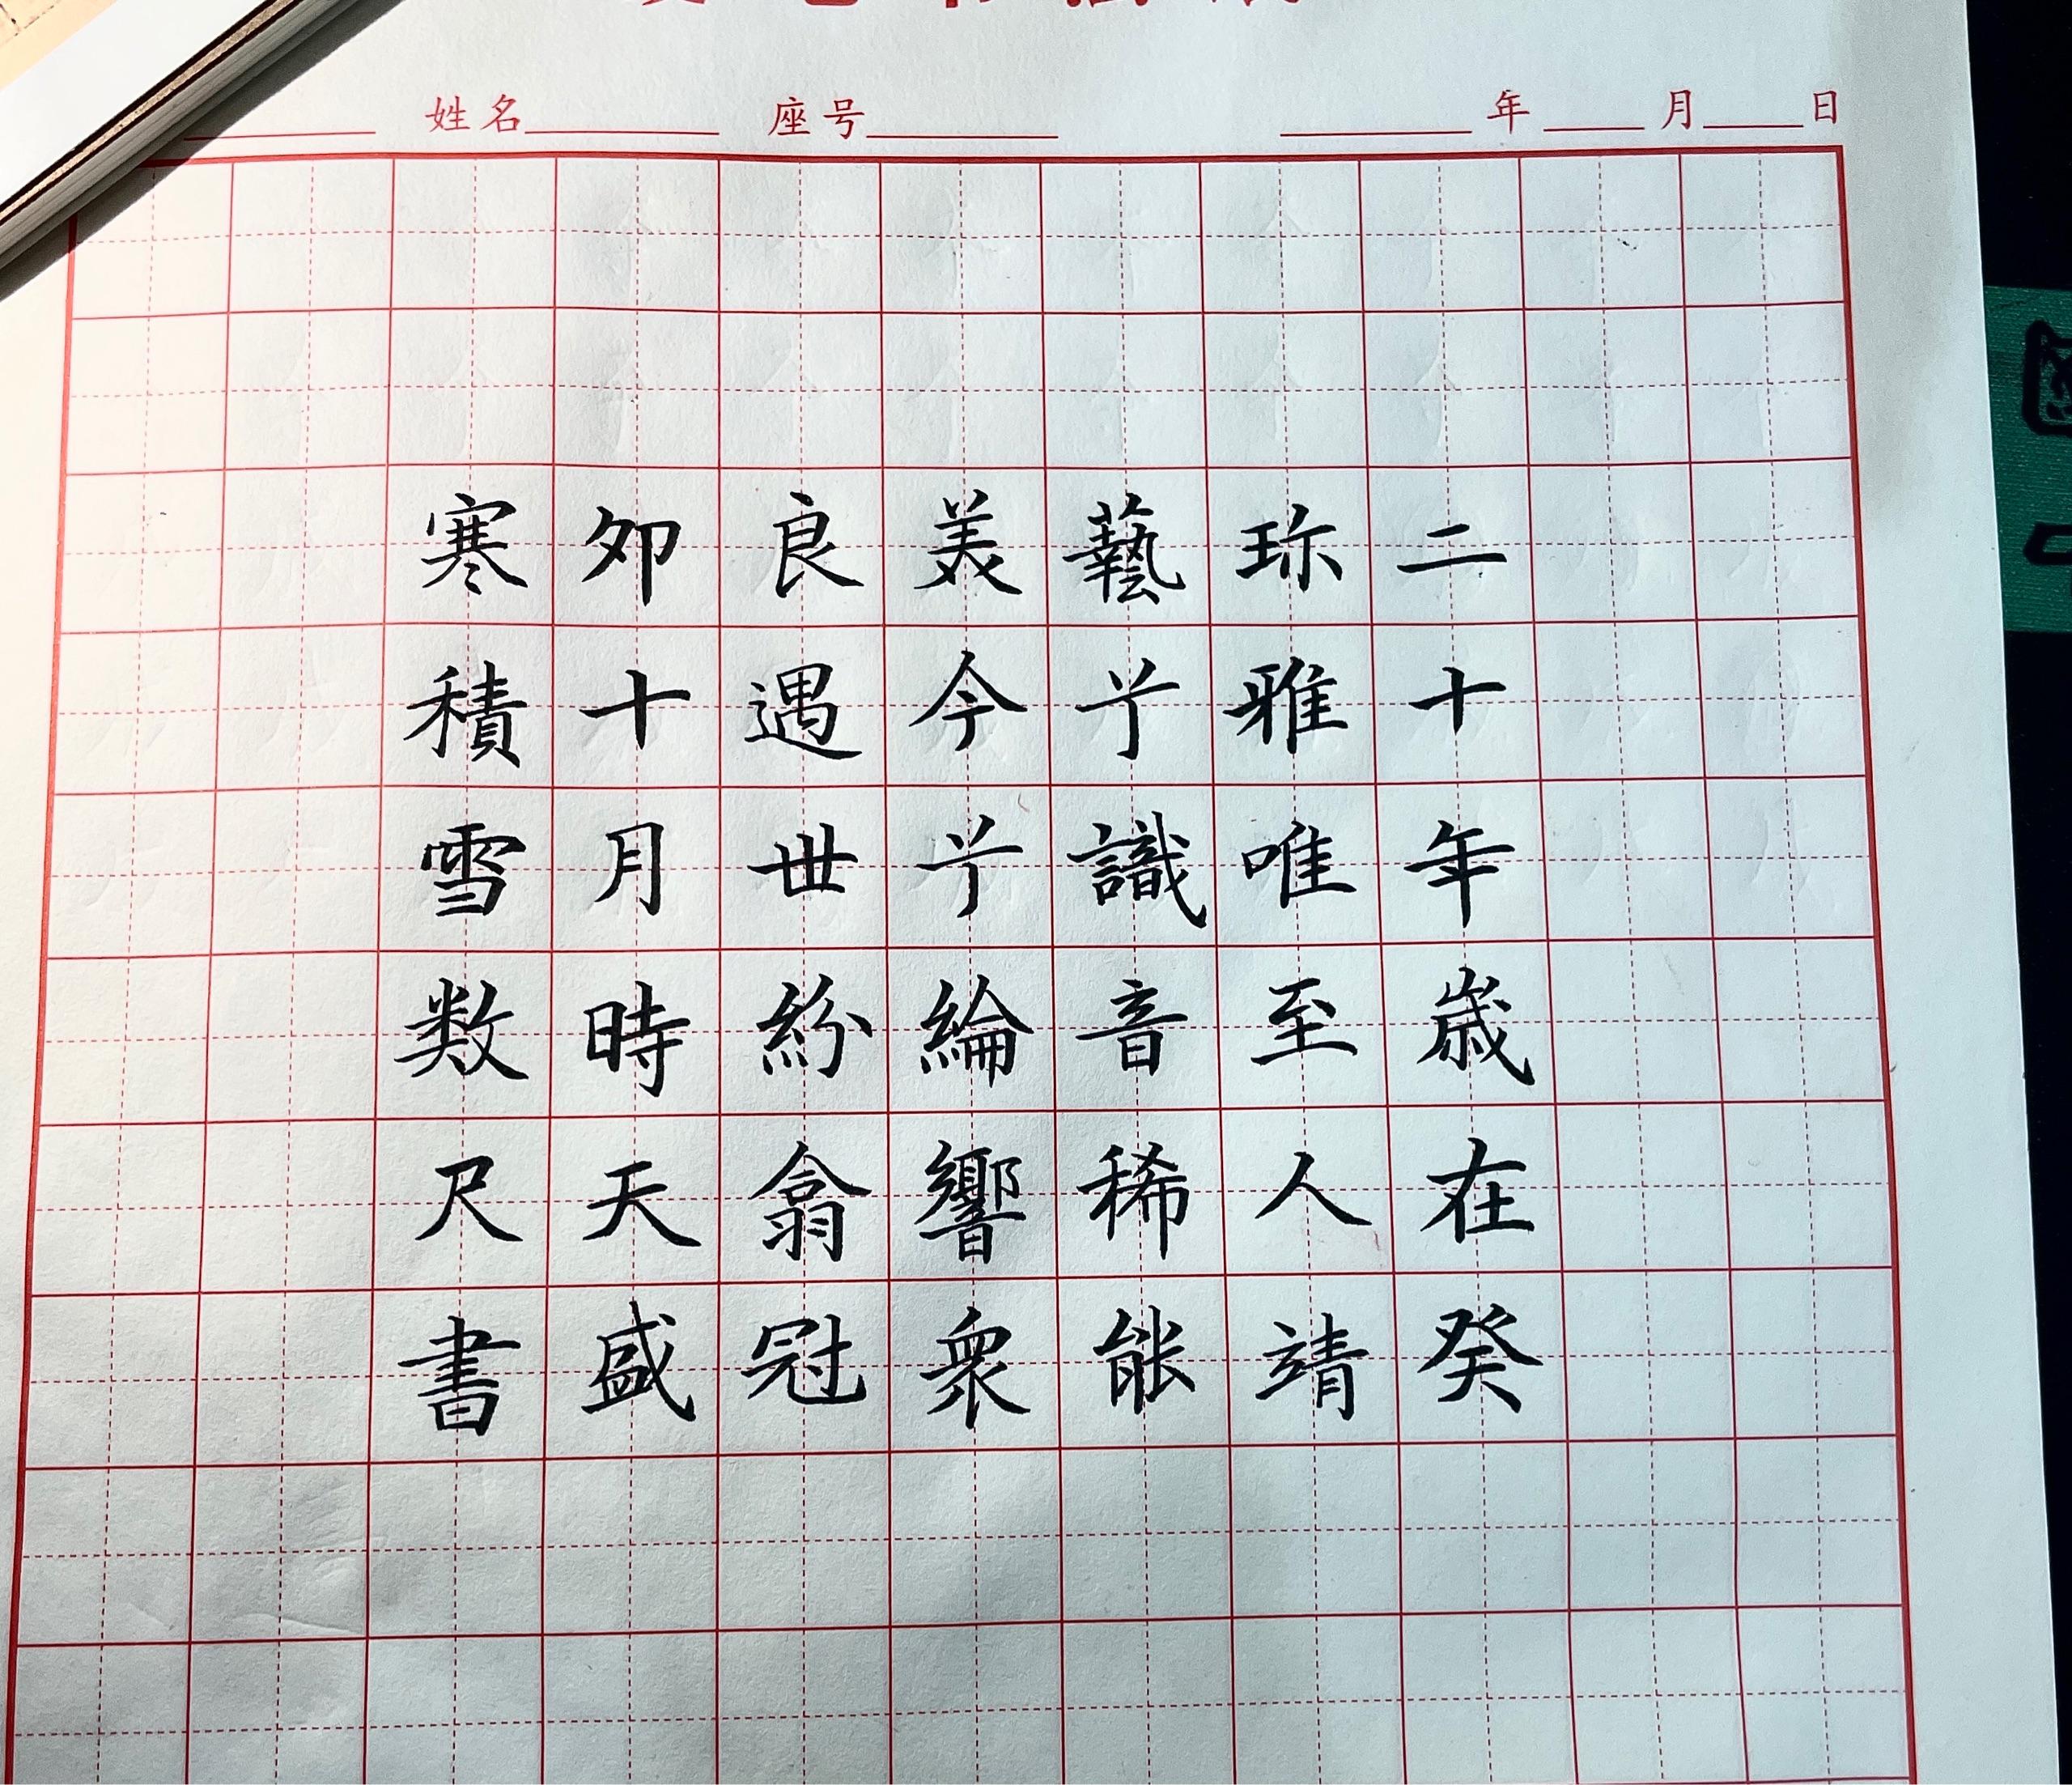 姓名 座号 年 月 日
二十年歳在癸
珎雅唯至人靖
藝兮識音稀能
美今兮綸響衆
良遇世紛翕冠
夘十月時天盛
寒積雪数尺書